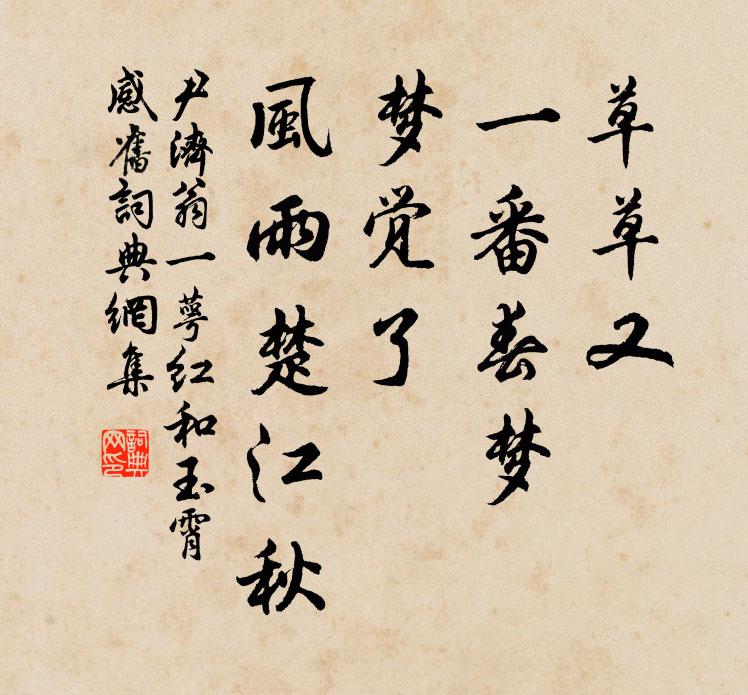 草草又
一番春梦
梦觉了
風雨楚江秋
尹濟翁一萼红和玉霄
感舊詞典網集
詞典网印